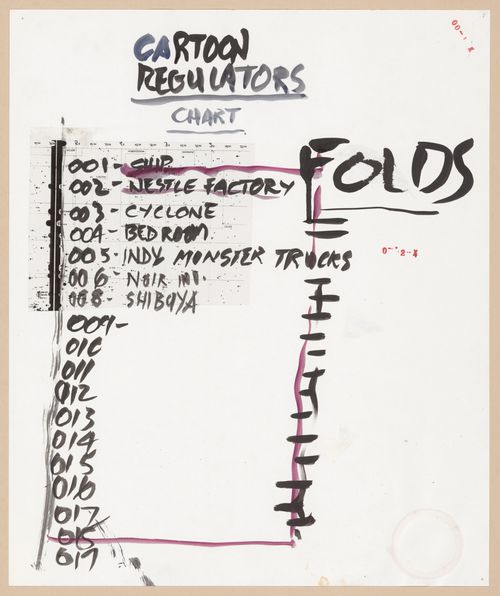 CARTOON
REGULATORS
CHART
FOLDS
001- SHIP
002- NESTLE FACTORY
003- CYCLONE
004- BEDROOM.
005- INDY MONSTER TRUCKS
006- NOIR INT.
008- SHIBUYA
009-
010
011
012
013
014
015
016
017
015
017